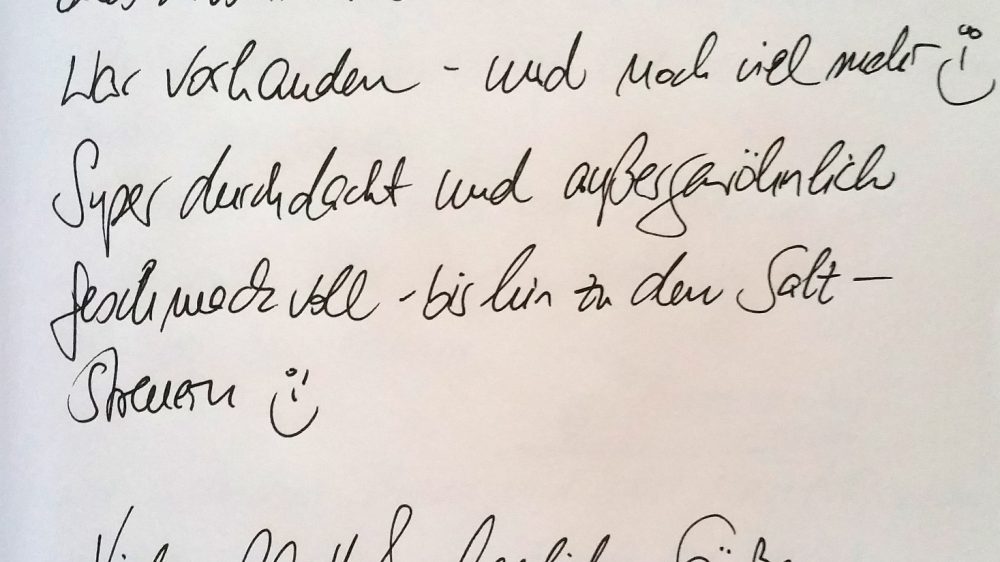 War vorhanden - und noch viel mehr
Super durchdacht und außergewöhnlich
geschmackvoll - bis hin zu den Salt-
Streuern